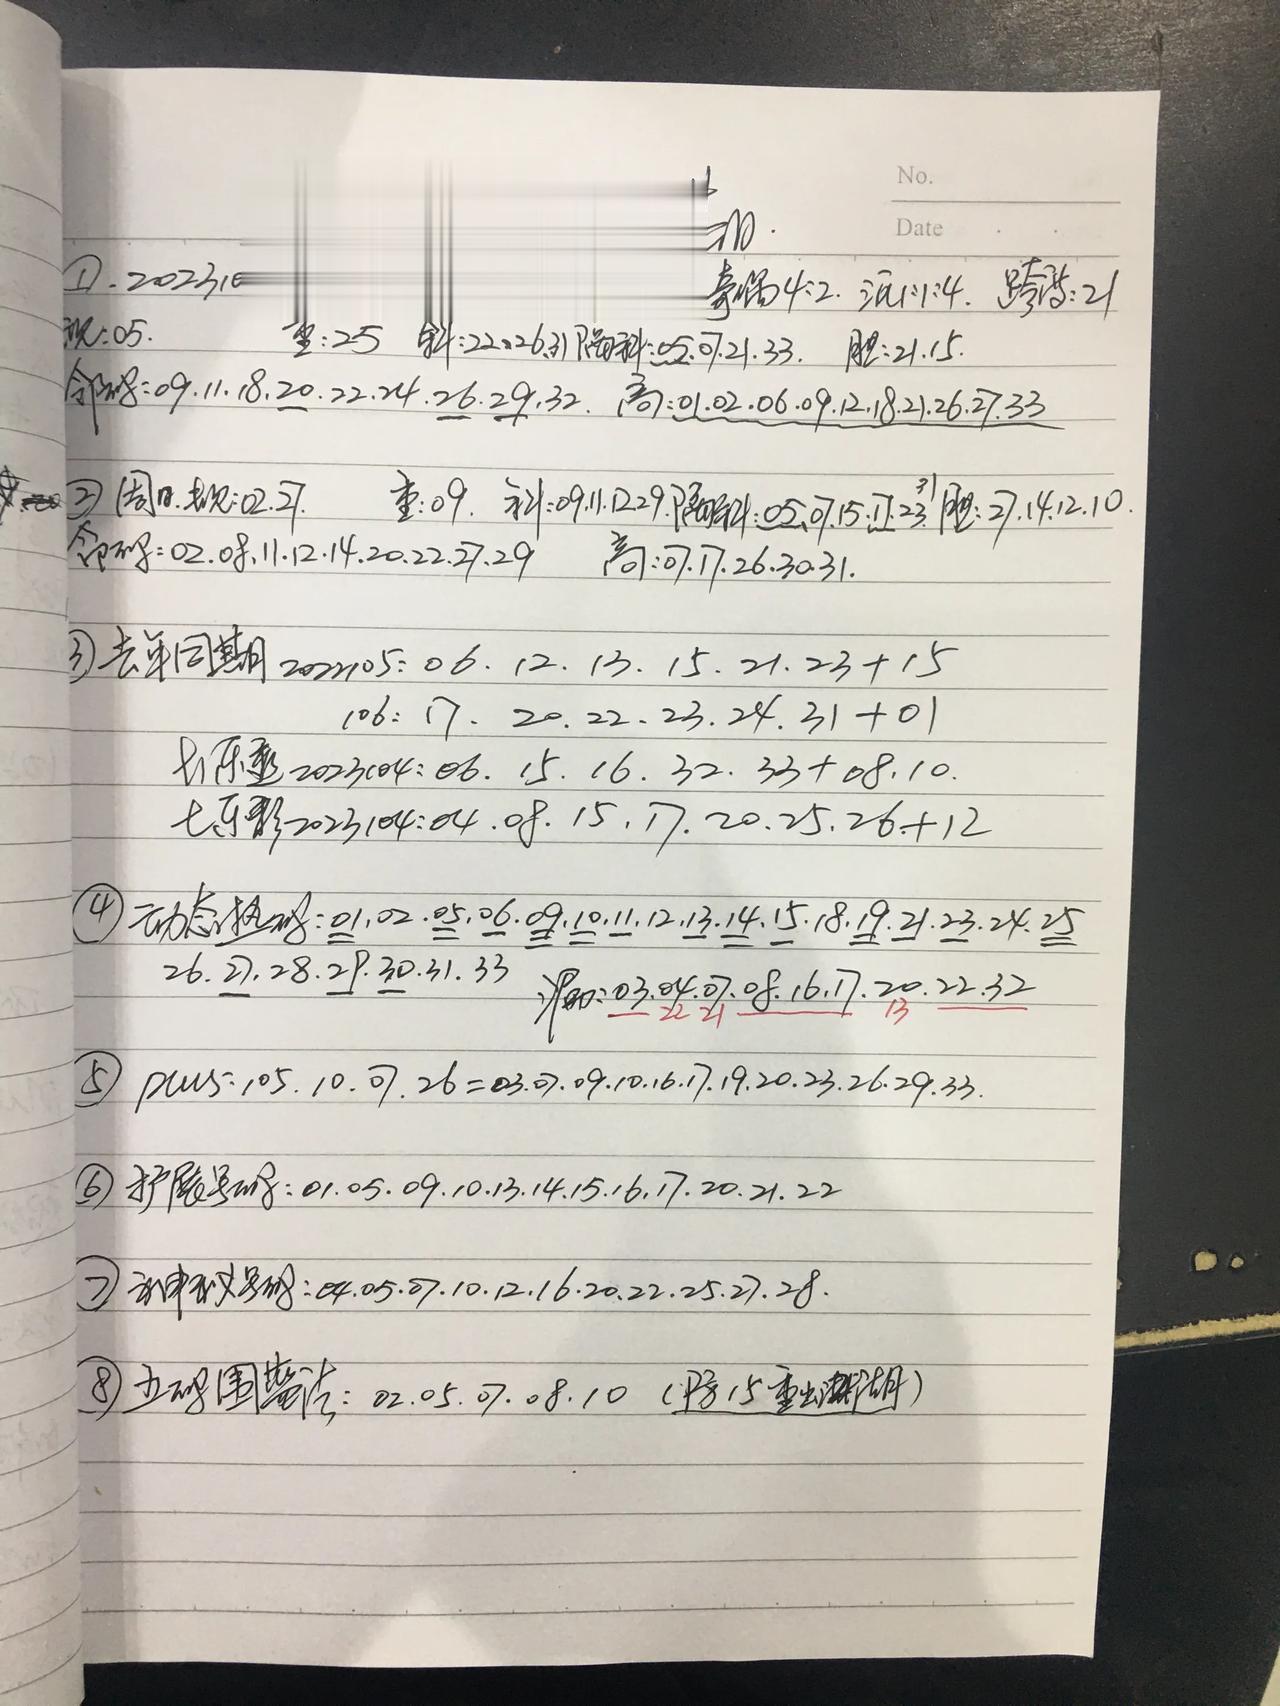 No.
Date
①. 202310
奇偶4:2. 1:1:4. 跨度:21
现:05. 重:25 斜:22.26.31 隔斜:05.07.21.33. 胆:21.15.
邻码:09.11.18.20.22.24.26.29.32. 高:01.02.06.09.12.18.21.26.27.33
②周日.表现:02.27. 重:09. 斜:09.11.12.29. 隔斜:05.07.15.17.23.31 胆:27.14.12.10.
邻码:02.08.11.12.14.20.22.27.29 高:07.17.26.30.31.
③去年同期2022105:06.12.13.15.21.23+15
106:17.20.22.23.24.31+01
大乐透2023104:06.15.16.32.33+08.10.
七乐彩2023104:04.08.15.17.20.25.26+12
④动态热码:01.02.05.06.09.10.11.12.13.14.15.18.19.21.23.24.25
26.27.28.29.30.31.33 :03.04.07.08.16.17.20.22.32
22 21 13
⑤plus:105.10.07.26=03.07.09.10.16.17.19.20.23.26.29.33.
⑥扩展号码:01.05.09.10.13.14.15.16.17.20.21.22
⑦号码:04.05.07.10.12.16.20.22.25.27.28.
⑧五码围蓝法:02.05.07.08.10 (防15重出)